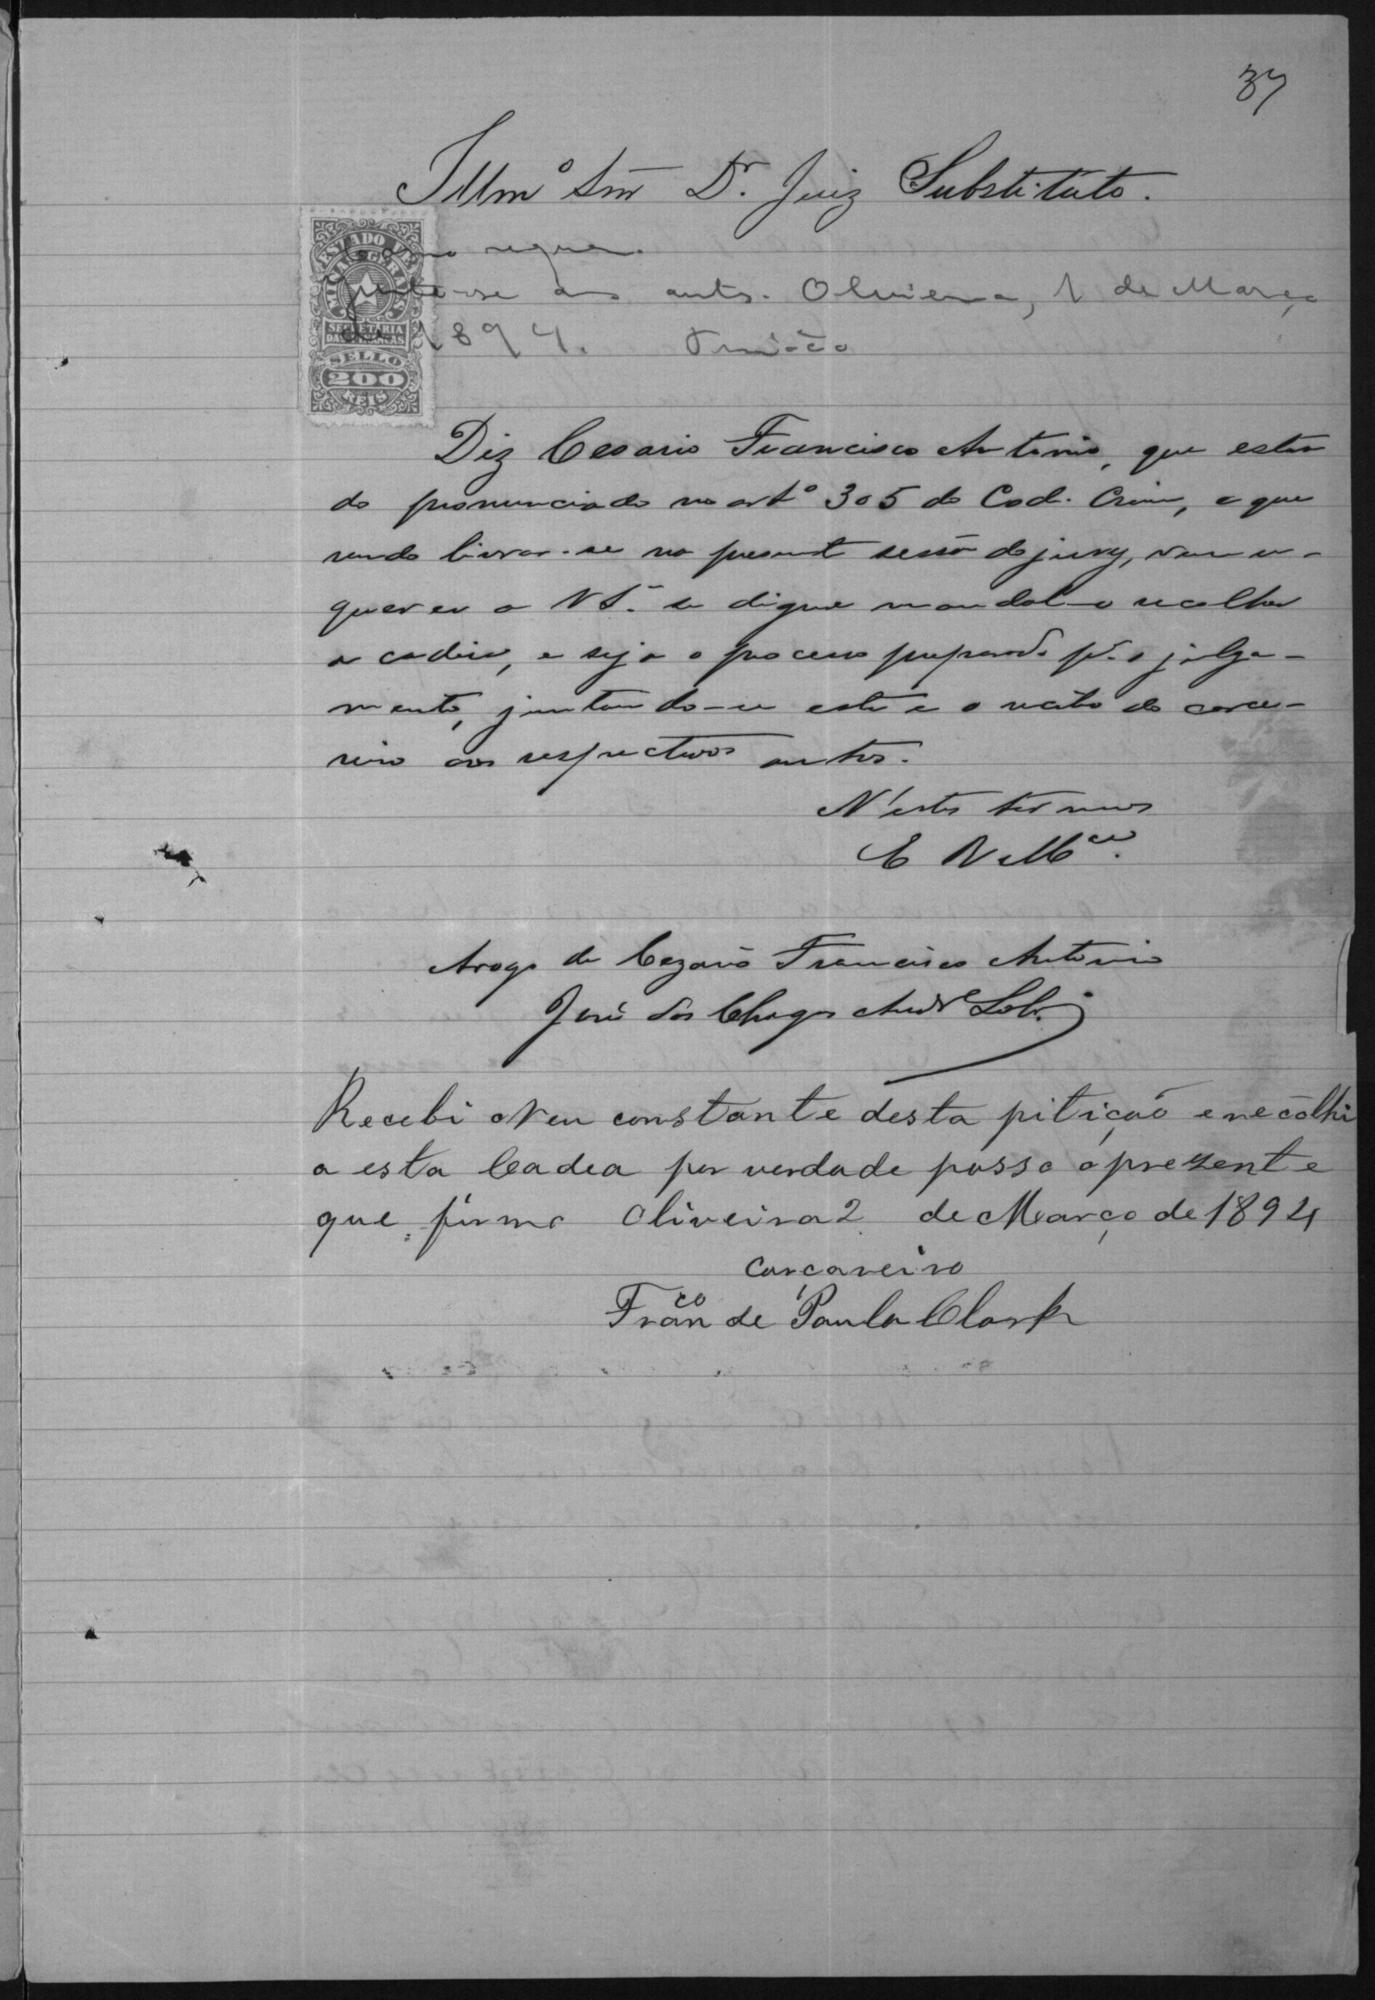 37
Illmº Snr Dr. Juiz Substituto.
Como requer.
Junte-se aos autos. Oliveira, 1 de Março
de 1894.
ESTADO DE
MINAS GERAES
SECRETARIA
DAS FINANÇAS
SELLO
200
REIS
Diz Cesario Francisco Antonio, que estan
do pronunciado no artº 305 do Cod. Crim, e que
rendo livrar-se na presente sessão do jury, vem re-
querer a V S.ª se digne mandal-o recolher
a cadeia, e seja o processo preparado pª. o julga-
mento, juntando-se esta e o recibo do carce-
reiro aos respectivos autos.
N'estes termos
E R Mce.
Arogo de Cezario Francisco Antonio
José das Chagas Andre Lob.
Recebi oReu constante desta pitição erecolhi
a esta Cadea por verdade passo opresente
que firmo Oliveira 2 de Março de 1894
Carçareiro
Franco de Paula Clark